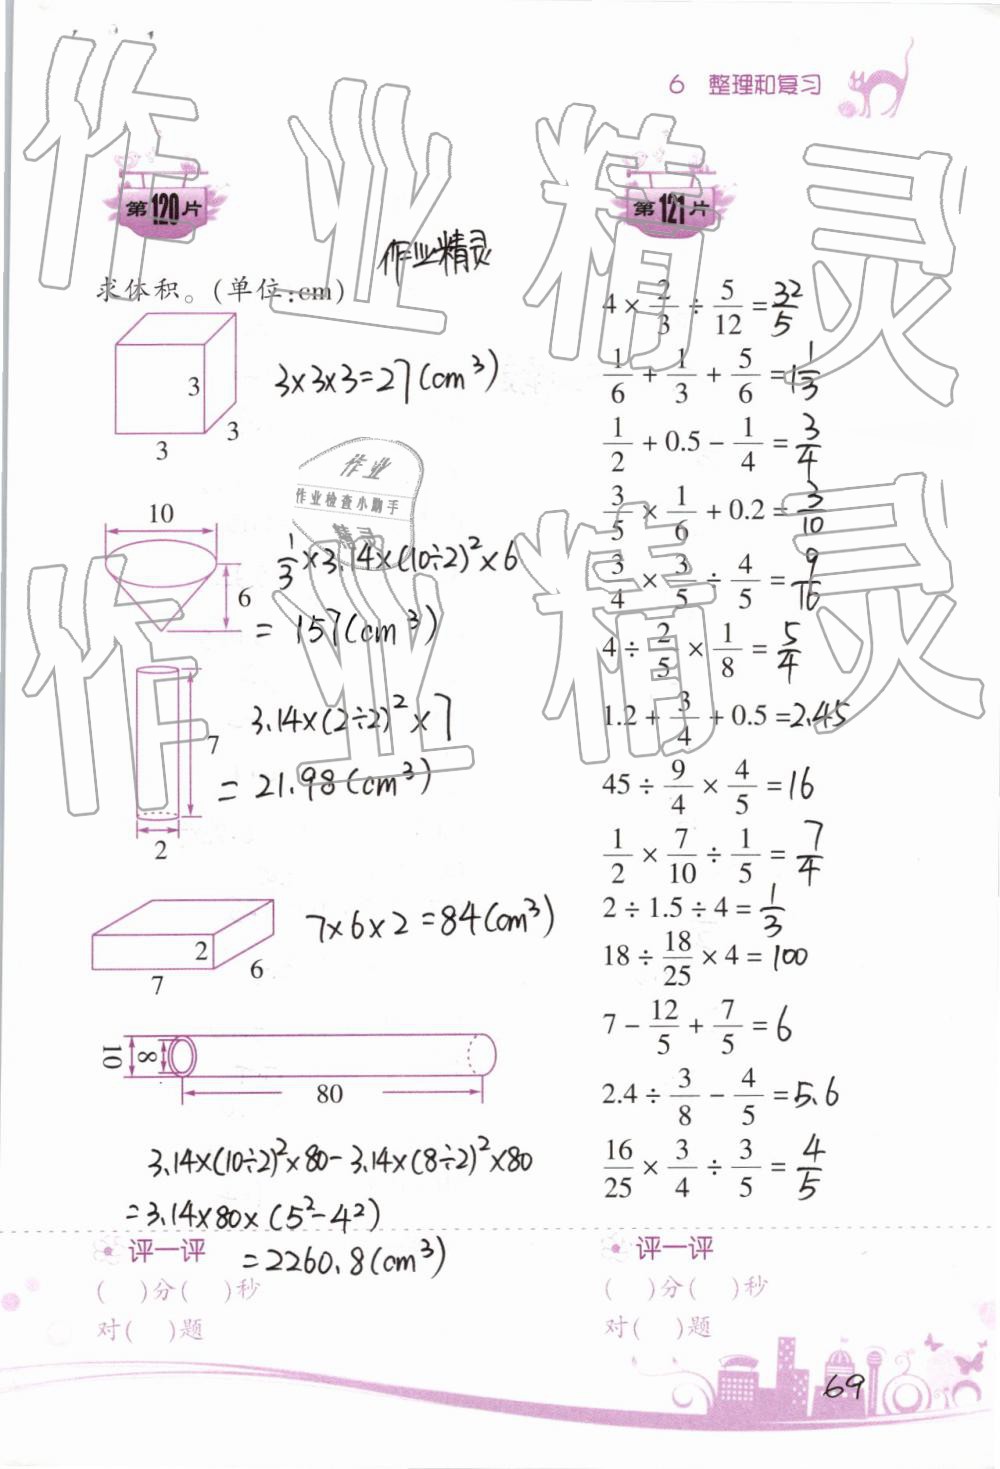 6 整理和复习
第120片
作业精灵
求体积。(单位:cm)
3
3
3
3×3×3=27(cm³)
作业
作业检查小助手
精灵
10
6
1/3×3.14×(10÷2)²×6
= 157(cm³)
7
2
3.14×(2÷2)²×7
= 21.98(cm³)
2
6
7
7×6×2=84(cm³)
10
8
80
3.14×(10÷2)²×80-3.14×(8÷2)²×80
=3.14×80×(5²-4²)
=2260.8(cm³)
评一评
( )分( )秒
对( )题
第121片
4×2/3÷5/12=32/5
1/6+1/3+5/6=1 1/3
1/2+0.5-1/4=3/4
3/5×1/6+0.2=3/10
3/4×3/5÷4/5=9/16
4÷2/5×1/8=5/4
1.2+3/4+0.5=2.45
45÷9/4×4/5=16
1/2×7/10÷1/5=7/4
2÷1.5÷4=1/3
18÷18/25×4=100
7-12/5+7/5=6
2.4÷3/8-4/5=5.6
16/25×3/4÷3/5=4/5
评一评
( )分( )秒
对( )题
69
作业精灵
作业精灵